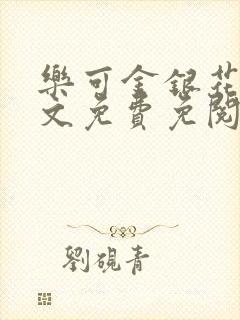 樂可金銀花
文免費免閱
劉硯青